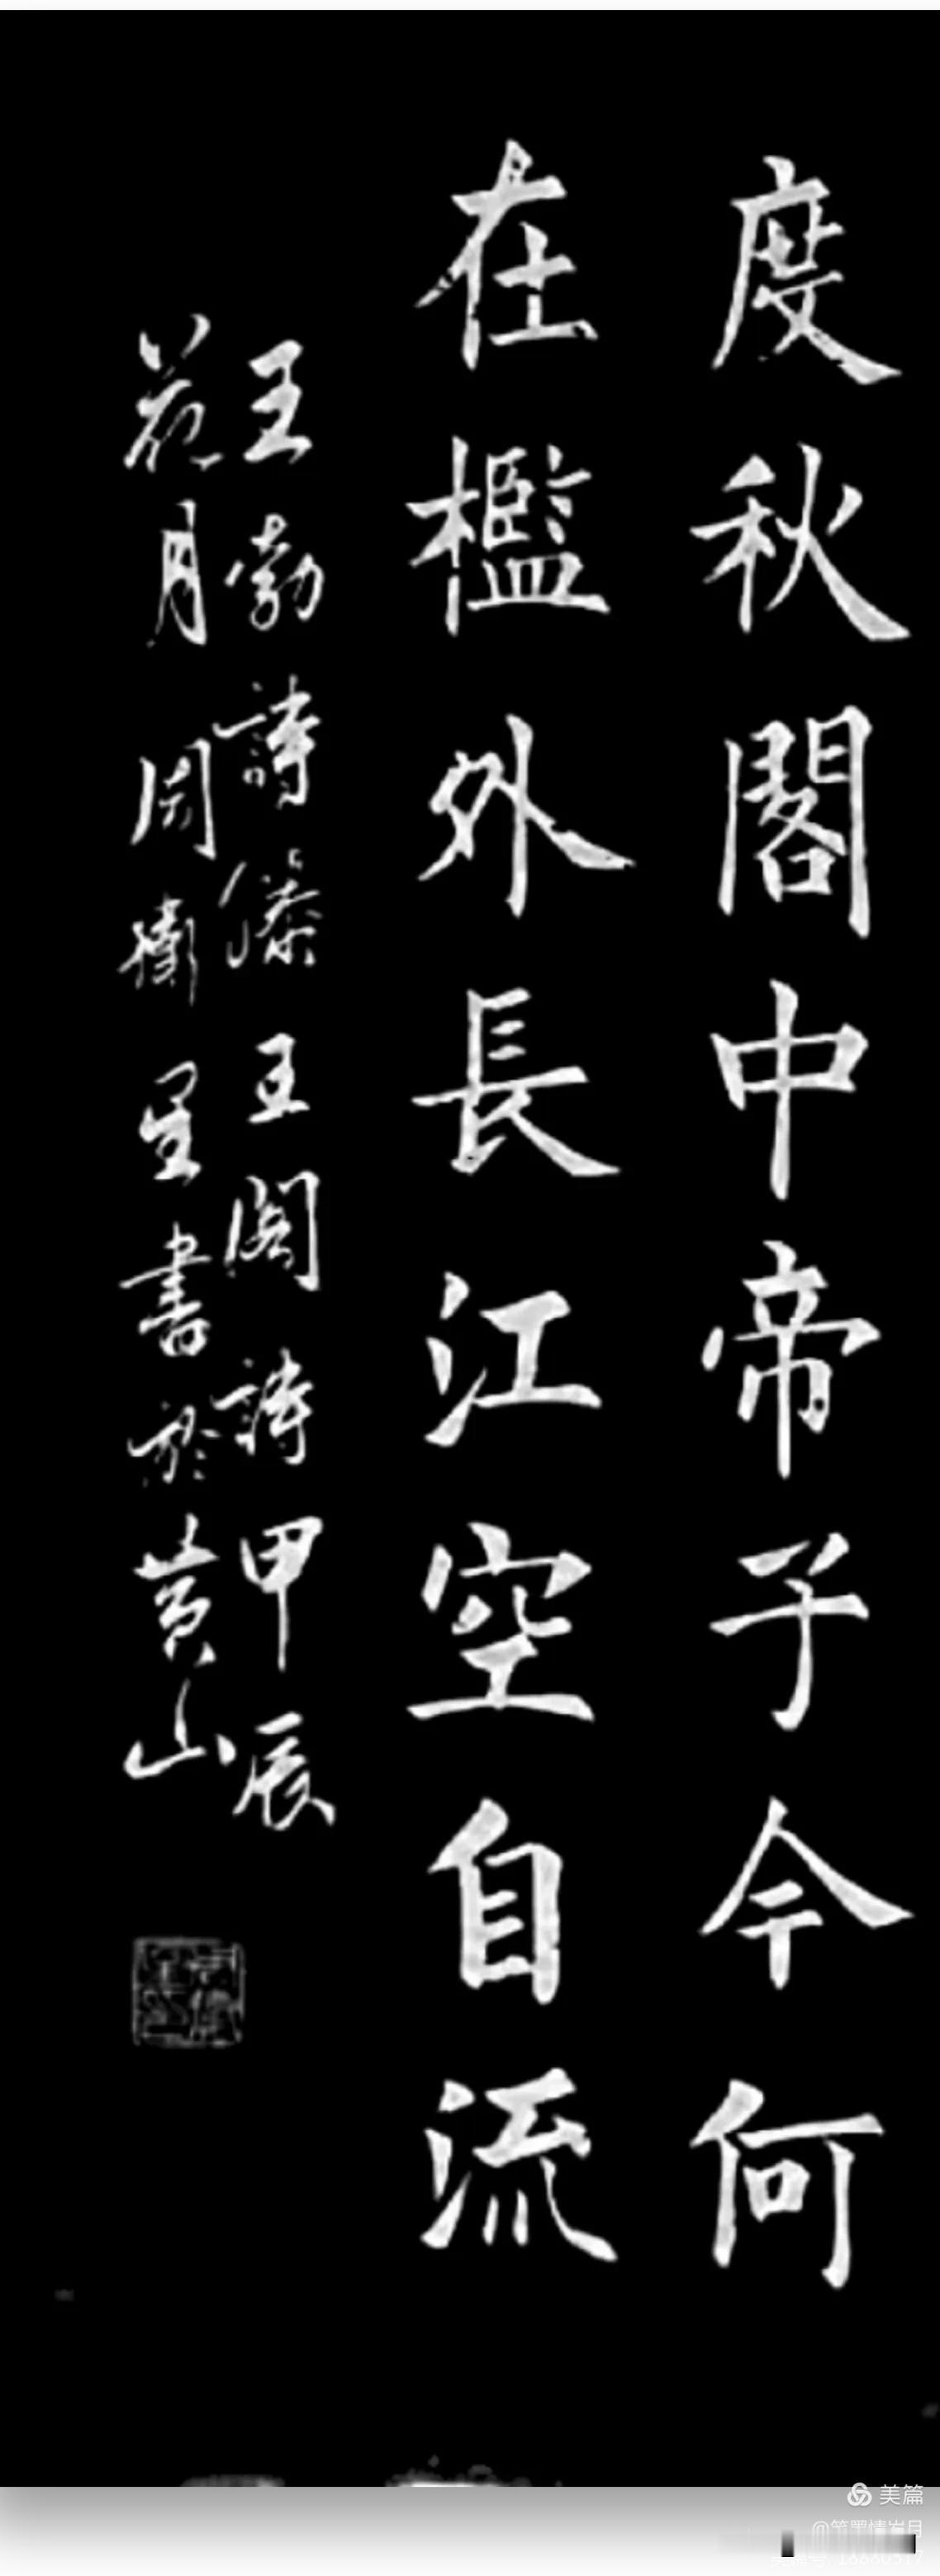 度秋閣中帝子今何
在檻外長江空自流
王勃詩滕王閣詩甲辰
花月周衛星書於黃山
美篇